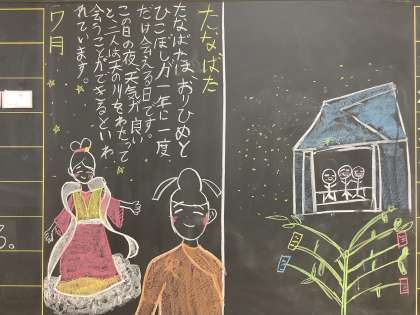 たなばた
たなばたは、おりひめと
ひこぼしが一年に一度、
だけ会える日です。
この日の夜、天気が良い
と、二人は天の川をわたって
会うことができるといわ
れています。
7月
る。